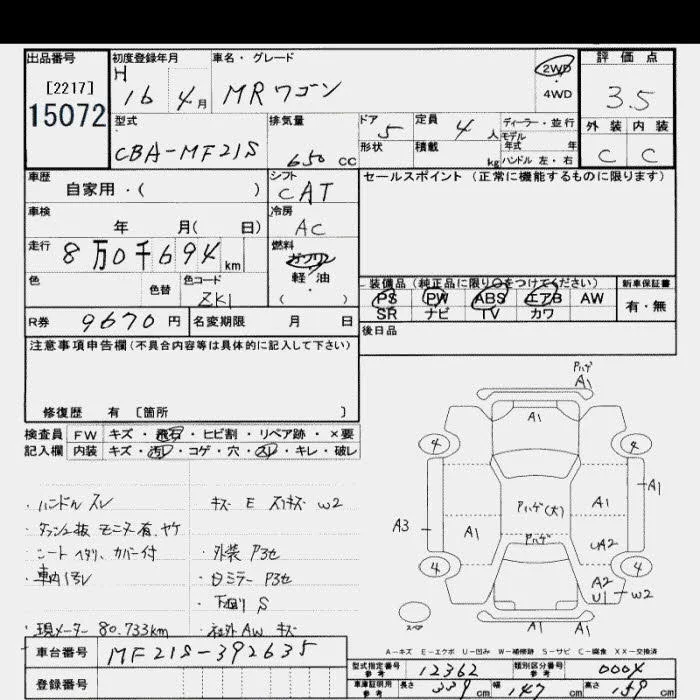 出品番号 初度登録年月 車名・グレード 2WD 評価点
[2217] H 16 4月 MRワゴン 4WD 3.5
15072
型式 排気量 ドア 5 定員 4人 ディーラー・並行 外装 内装
モデル年式 年
CBA-MF21S 650 CC 形状 積載 kg ハンドル 左・右 C C
車歴 シフト セールスポイント (正常に機能するものに限ります)
自家用・( ) CAT
車検 冷房
年 月( 日) AC
走行 燃料
8万0千694km ガソリン
軽・油
( )
色 色替 色コード 装備品(純正品に限り○をつけてください) 新車保証書
ZK1 PS PW ABS エアB AW 有・無
SR ナビ TV カワ
R券 9670円 名変期限 月 日 後日品
注意事項申告欄(不具合内容等は具体的に記入して下さい)
修復歴 有 [箇所 ]
検査員 FW キズ・飛石・ヒビ割・リペア跡・×要
記入欄 内装 キズ・汚レ・コゲ・穴・スレ・キレ・破レ
・ハンドルスレ キズ E スリキズ W2
・シートヘタリ、カバー付 ・外装 P3セ
・車内汚レ ・白ミラー P3セ
・下回り S
・現メーター 80.733km ・社外AW キズ
アハゲ
A1
A1
4 4
アハゲ(大) A1 A1
A3 A1 アハゲ UA2
4 4
A2
U1 W2
スペア A1 A1
A-キズ E-エクボ U-凹み W-補修跡 S-サビ C-腐食 XX-交換済
車台番号 MF21S-392635
登録番号
型式指定番号 参考 12362 類別区分番号 参考 0004
車庫証明用 参考 長さ 339cm 幅 147cm 高さ 159cm